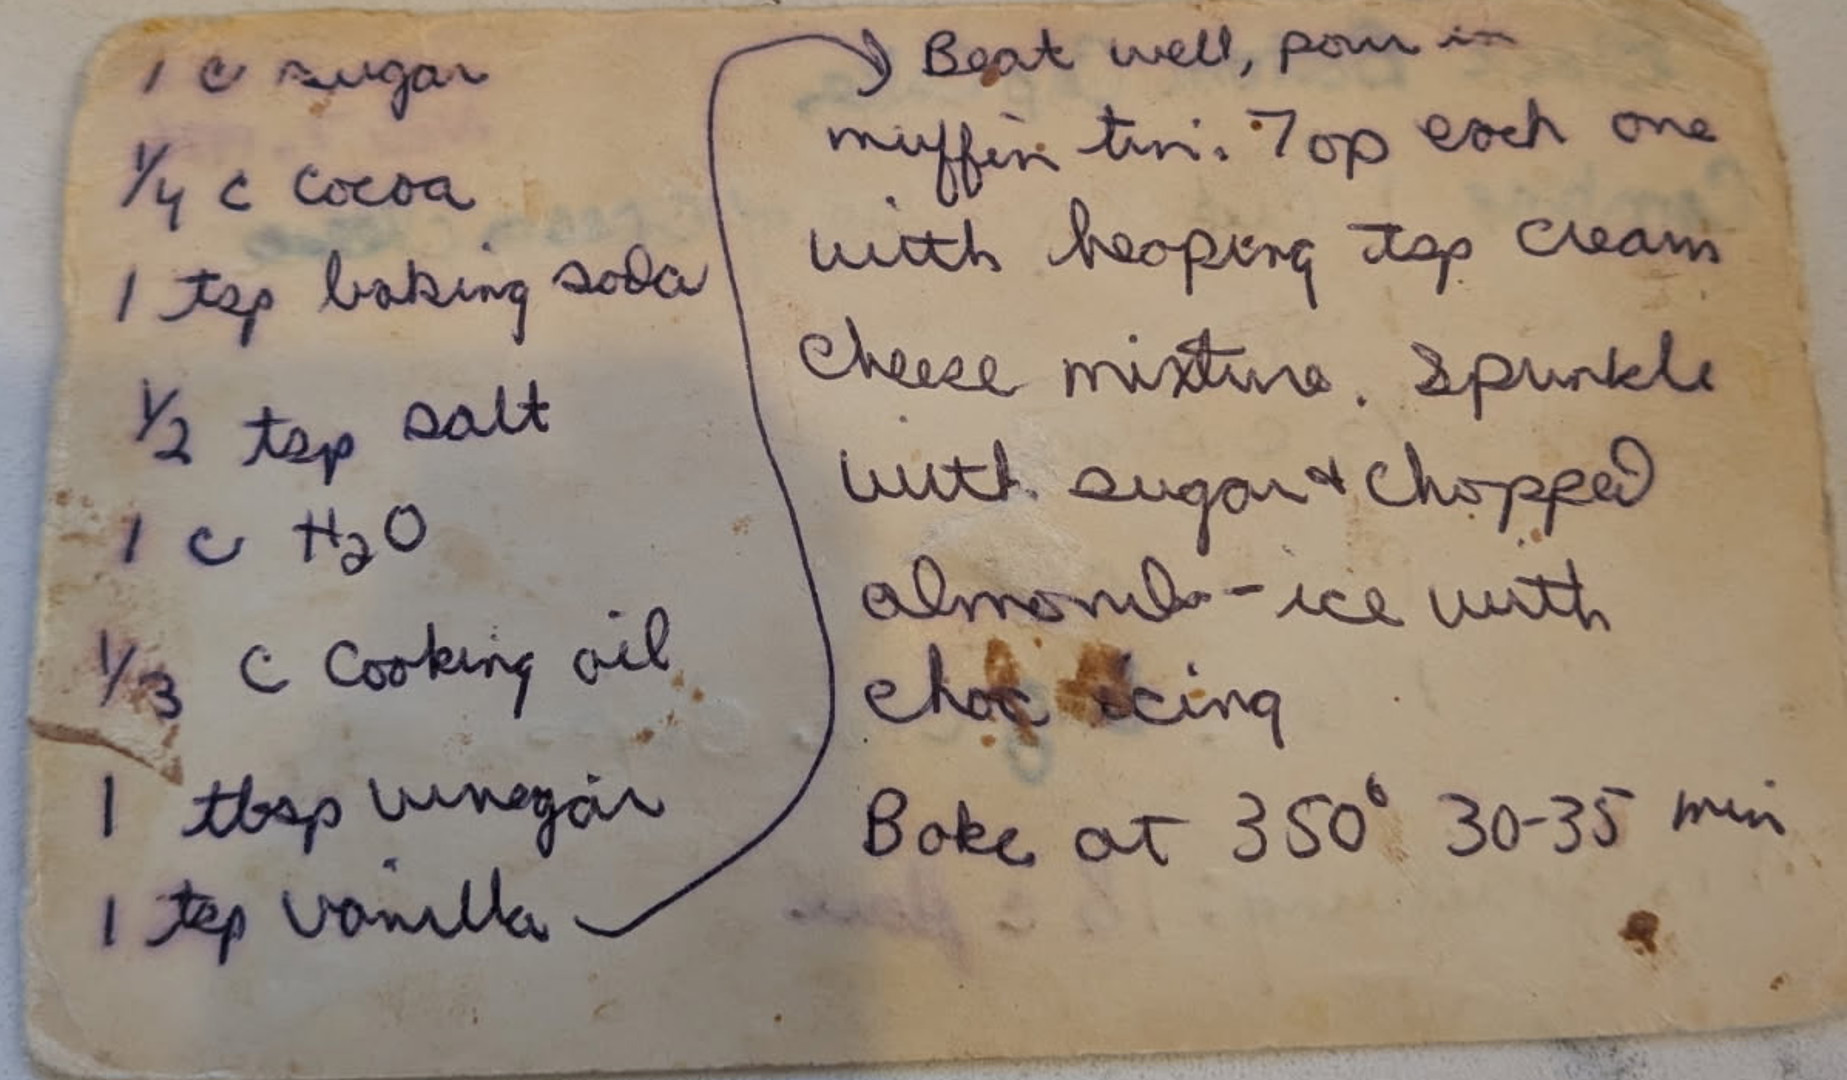 1 c sugar
1/4 c cocoa
1 tsp baking soda
1/2 tsp salt
1 c H2O
1/3 c cooking oil
1 tbsp vinegar
1 tsp vanilla
Beat well, pour in
muffin tin. Top each one
with heaping tsp cream
cheese mixture. Sprinkle
with sugar & chopped
almonds - ice with
choc icing
Bake at 350° 30-35 min